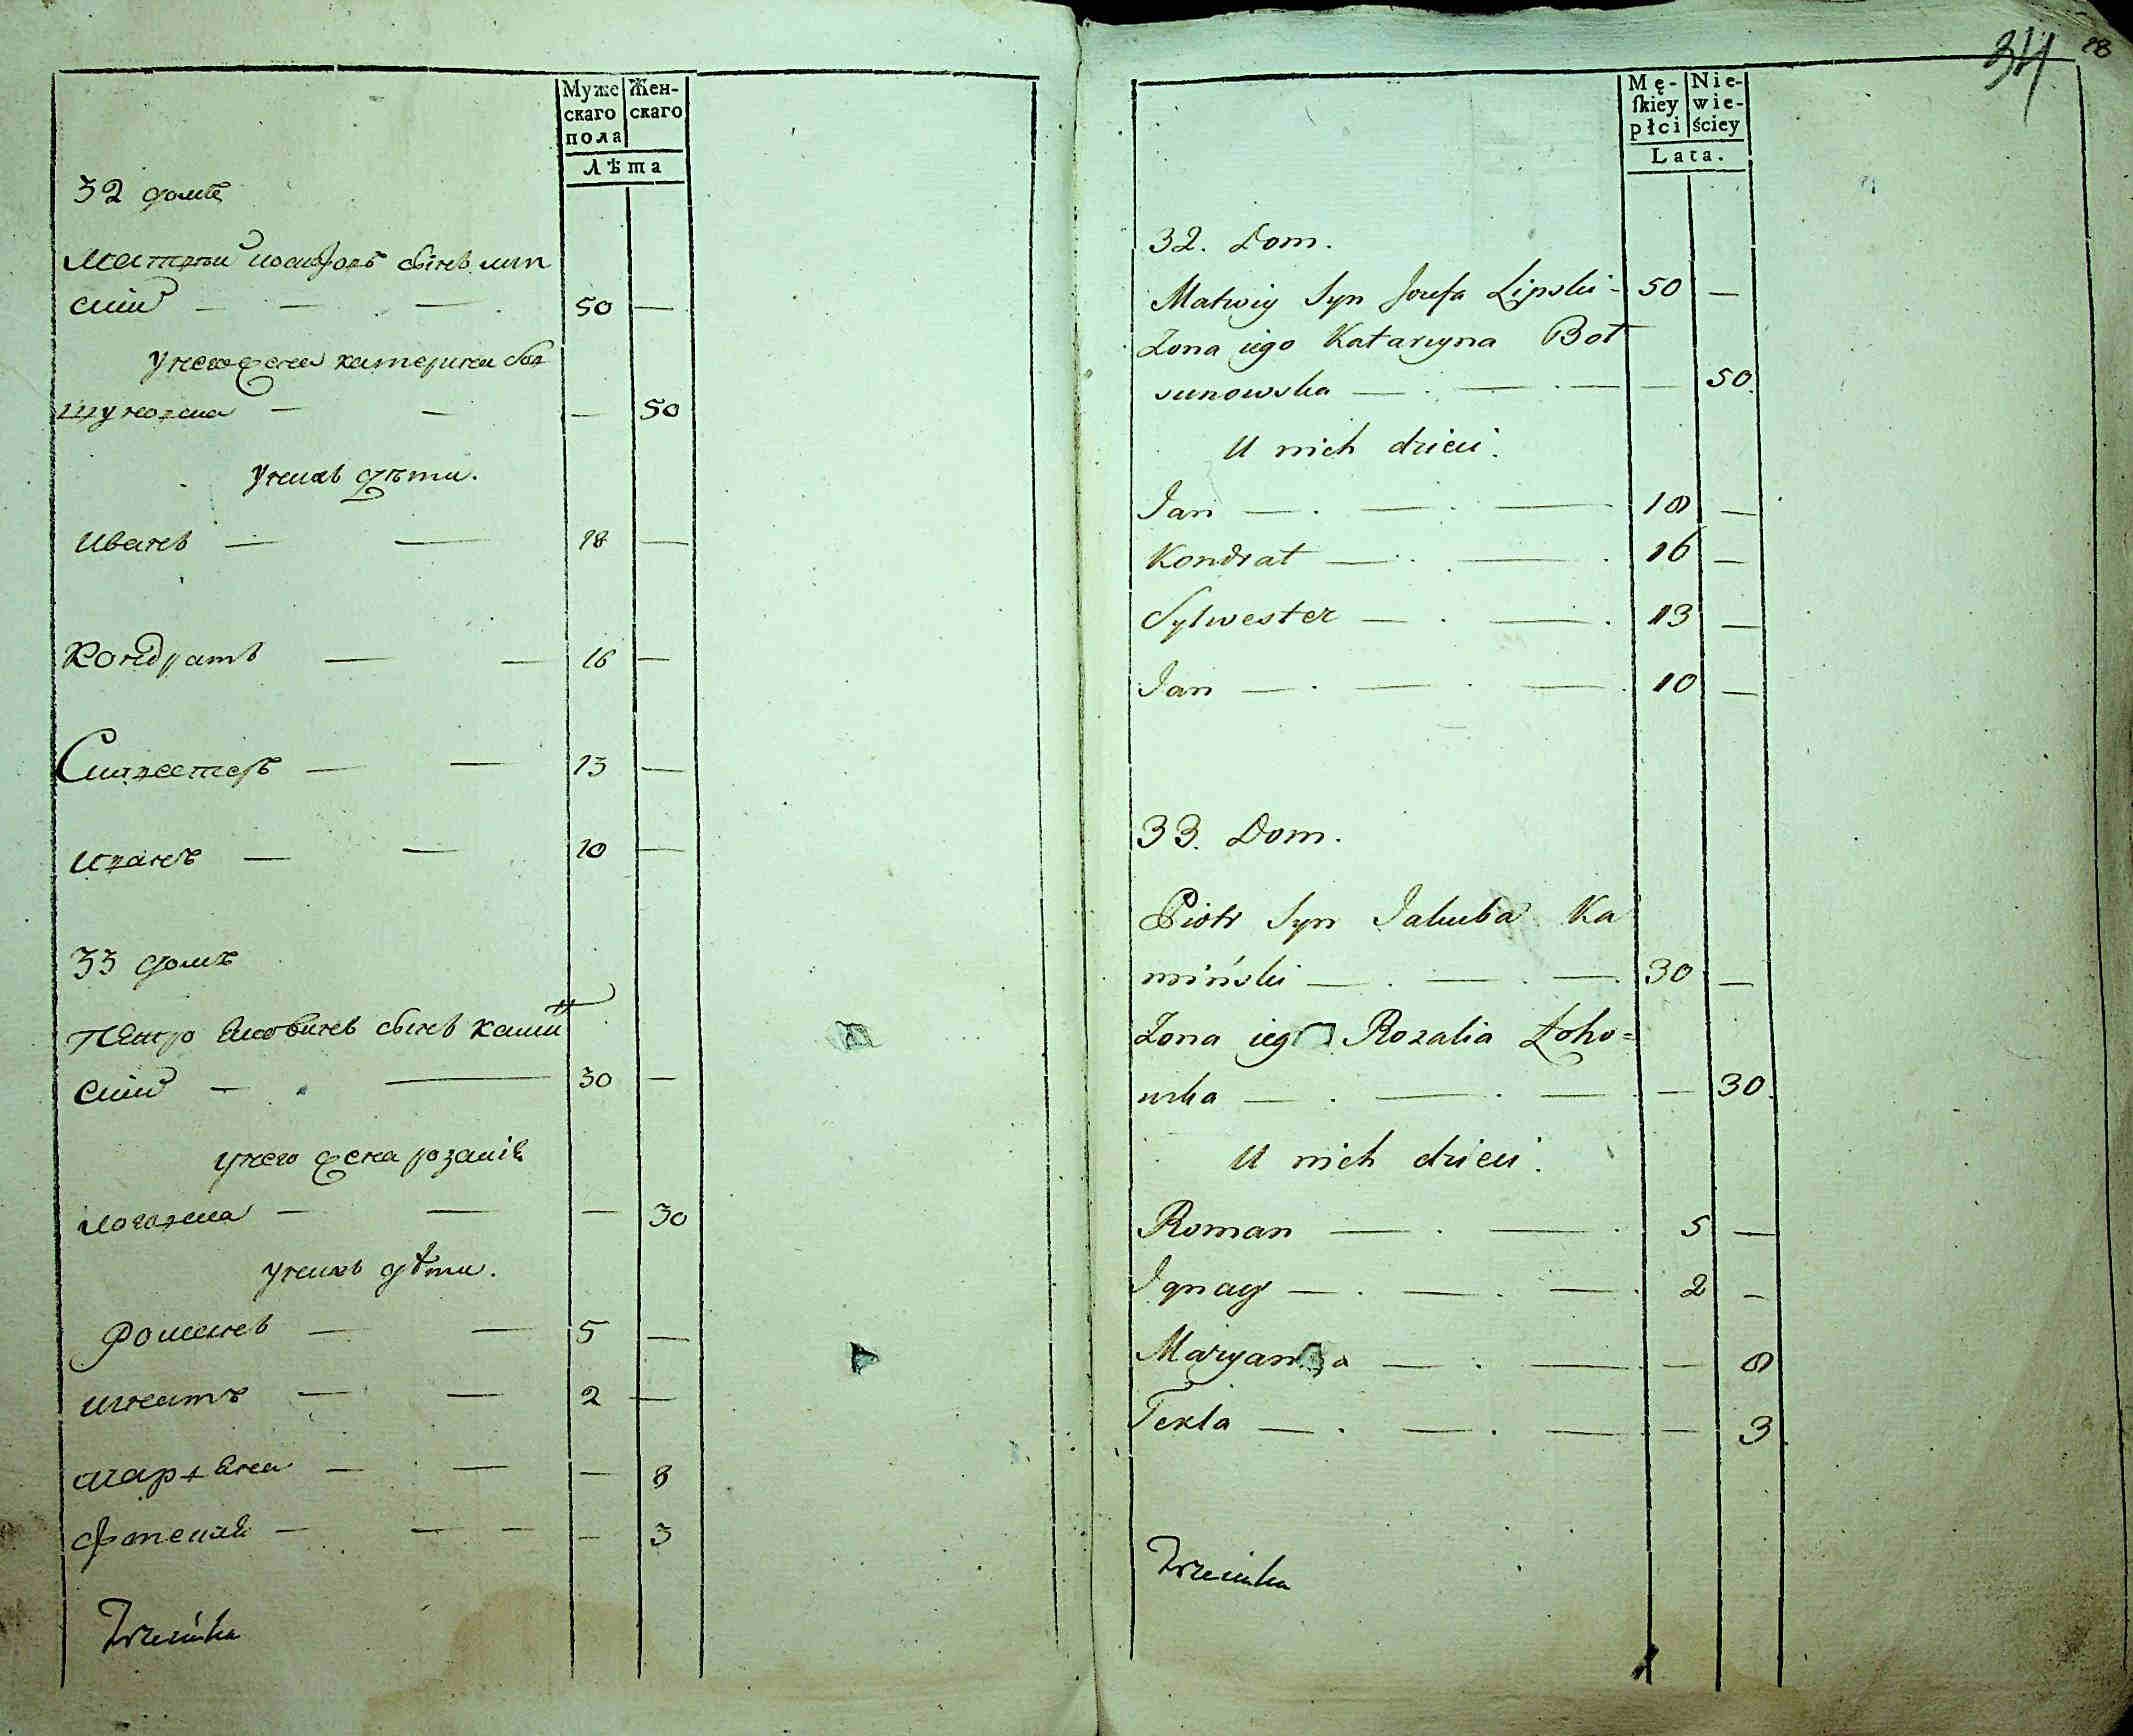 Муже Жен-
скаго скаго
пола
Лѣта
32 домъ
Матвѣй иосифовъ сынъ лип
ский — — — 50 —
у него жена катерина бол
шуновска — — — 50
у нихъ дѣти.
Иванъ — — 18 —
Кондратъ — — 16 —
Силвестеръ — — 13 —
Иванъ — — 10 —
33 домъ
Петро сынъ камин
ский — — 30 —
у него жена розалія
логовска — — — 30
у нихъ дѣти.
Романъ — — 5 —
игнатъ — — 2 —
маръяна — — — 8
— — — — 3
34 28
Mę- Nie-
ſkiey wie-
płci ściey
Lata.
32. Dom.
Matwiy Syn Jozefa Lipski - 50 —
Zona iego Katarzyna Bol
sunowska — . — . — — 50.
U nich dzieci.
Jan — . — . — 18 —
Kondrat — . — . 16 —
Sylwester — . — . 13 —
Jan — . — . — . 10 —
33. Dom.
Piotr Syn Jakuba Ka
miński — . — . — . 30 —
Zona iego Rozalia Łoho=
wska — . — . — . — 30.
U nich dzieci.
Roman — . — . 5 —
Ignacy — . — . — . 2 —
Maryanna — . — . — 8
Tekla — . — . — — 3.